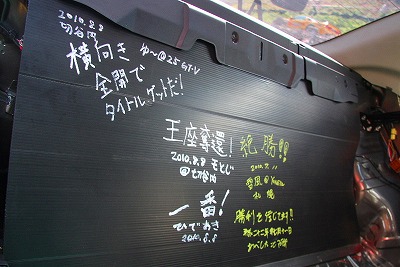 2010.8.8
切谷内
横向き
ゆ〜@25 GT-V
全開で
タイトルゲットだ!
王座奪還!
2010.8.8 もとじ
@切谷内
一番!
ひであき
2010.8.8
絶勝!!
勝利を信じてます!!